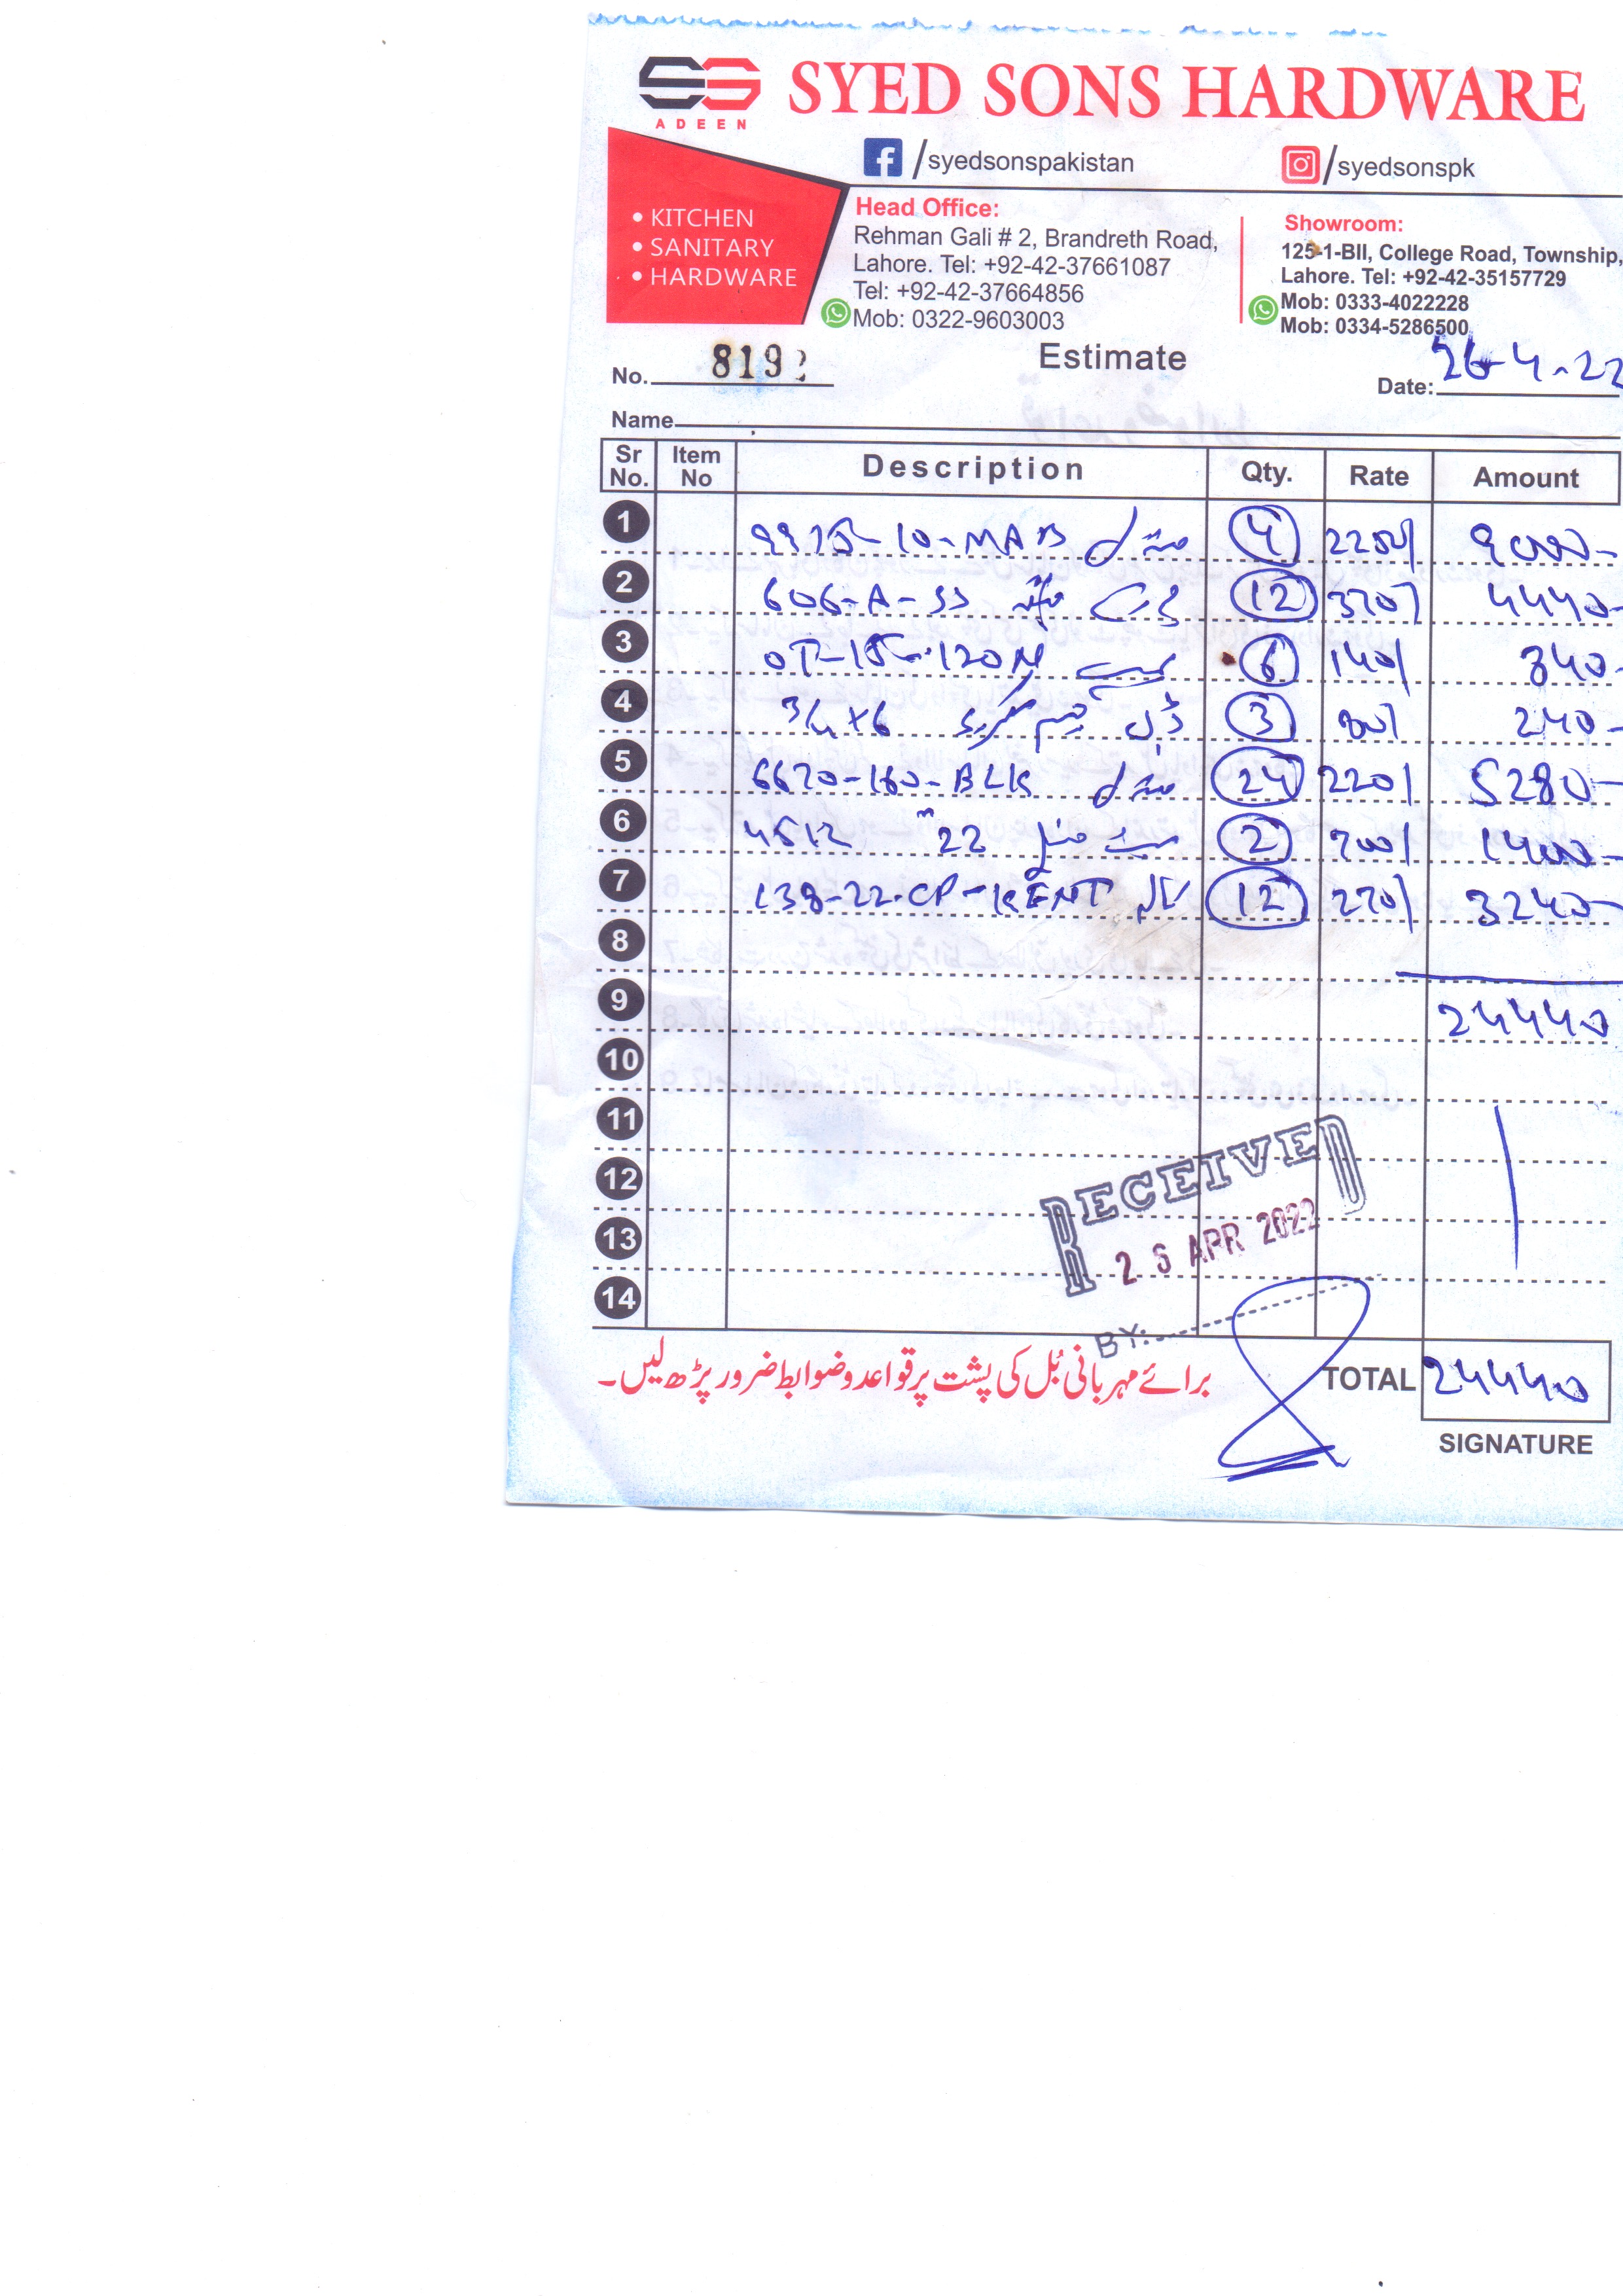 SS
ADEEN
SYED SONS HARDWARE
/syedsonspakistan
/syedsonspk
• KITCHEN
• SANITARY
• HARDWARE
Head Office:
Rehman Gali # 2, Brandreth Road,
Lahore. Tel: +92-42-37661087
Tel: +92-42-37664856
Mob: 0322-9603003
Showroom:
125-1-BII, College Road, Township,
Lahore. Tel: +92-42-35157729
Mob: 0333-4022228
Mob: 0334-5286500
No. 8192
Estimate
Date: 26-4-22
Name
Sr No. Item No Description Qty. Rate Amount
1 10-MAB ہینڈل 4 2250/ 9000-
2 606-A-SS 12 370/ 4440-
3 120M 6 140/ 840-
4 3/4x6 3 80/ 240-
5 6620-160-BLK ہینڈل 24 220/ 5280-
6 4512 22" 2 700/ 1400-
7 138-22-CP-KENT 12 270/ 3240-
8
9 24440
10
11
12
13
14
RECEIVED
26 APR 2022
BY:
برائے مہربانی بُل کی پشت پر قواعد و ضوابط ضرور پڑھ لیں۔
TOTAL 24440
SIGNATURE